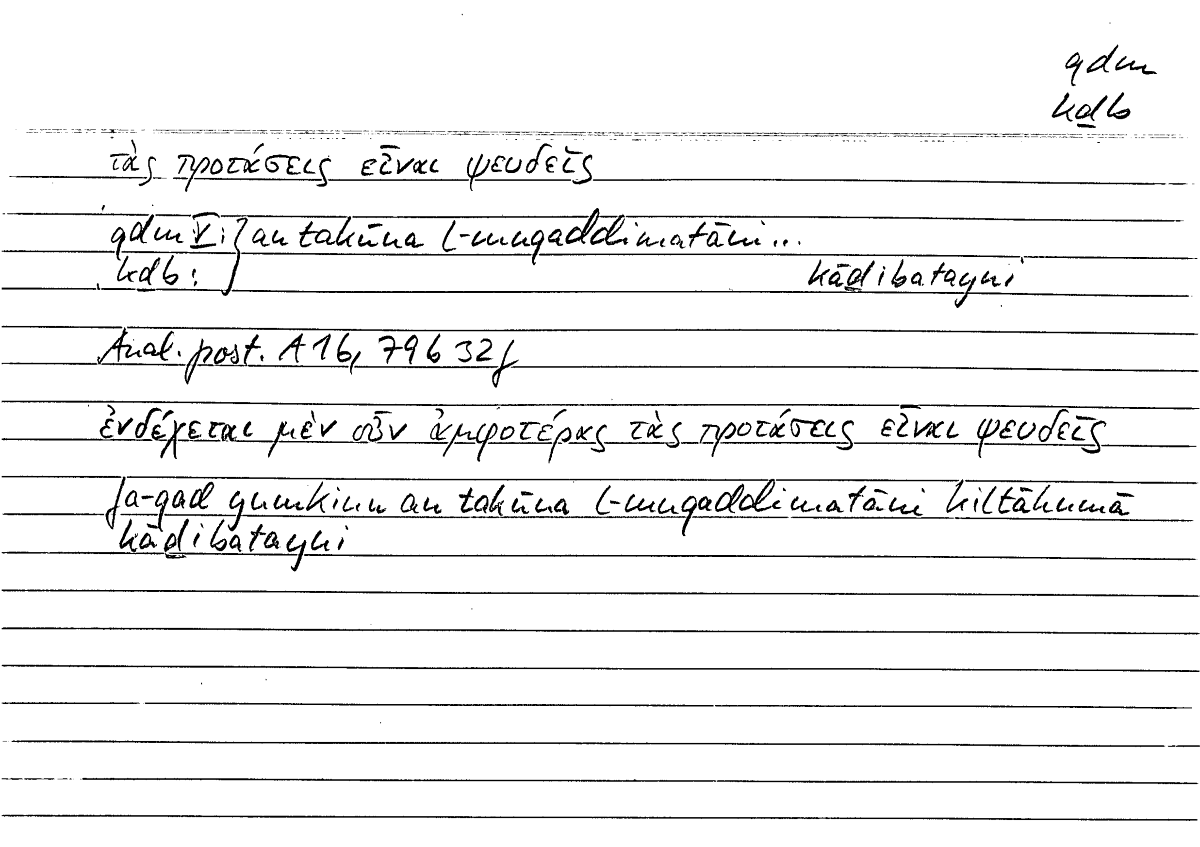 qdm
kḏb
τὰς προτάσεις εἶναι ψευδεῖς
qdm V: } an takūna l-muqaddimatāni...
kḏb: kāḏibatayni
Anal. post. A 16, 79 b 32 f
ἐνδέχεται μὲν οὖν ἀμφοτέρας τὰς προτάσεις εἶναι ψευδεῖς
fa-qad yumkinu an takūna l-muqaddimatāni kiltāhumā
kāḏibatayni